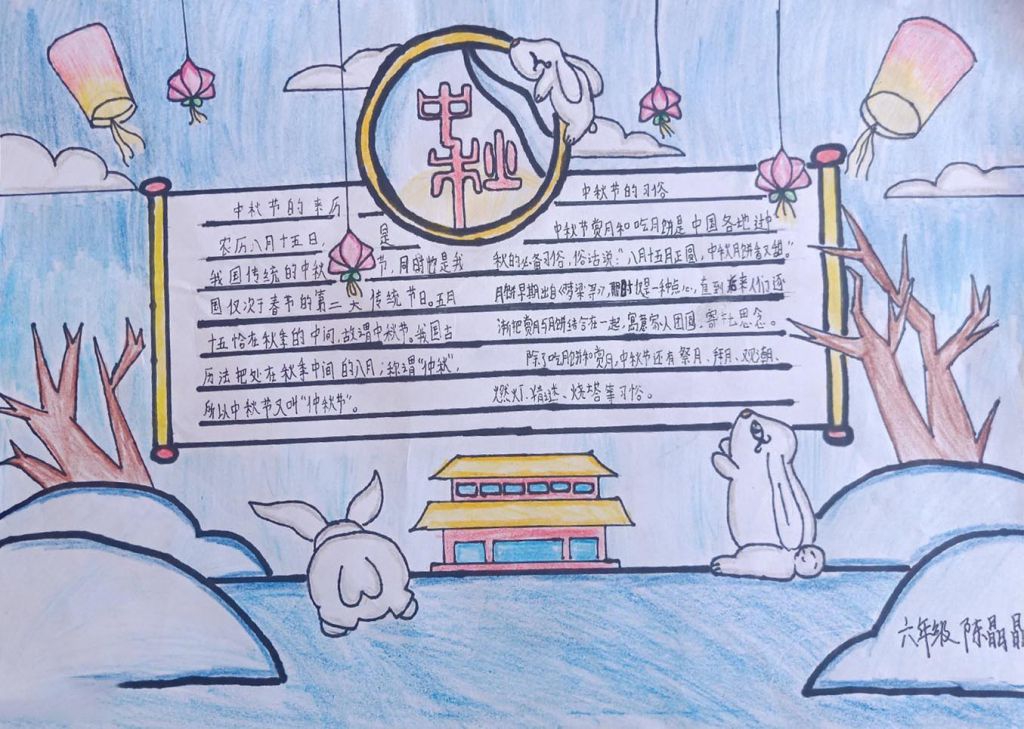 中秋
中秋节的来历
农历八月十五日,是
我国传统的中秋节,同时也是我
国仅次于春节的第二大传统节日。五月
十五恰在秋季的中间,故谓中秋节。我国古
历法把处在秋季中间的八月,称谓“仲秋”,
所以中秋节又叫“仲秋节”。
中秋节的习俗
中秋节赏月和吃月饼是中国各地过中
秋的必备习俗,俗话说:“八月十五月正圆,中秋月饼香又甜。”
月饼早期出自《梦梁录》,那时仅是一种点心,直到后来人们逐
渐把赏月与月饼结合在一起,寓意家人团圆,寄托思念。
除了吃月饼和赏月,中秋节还有祭月、拜月、观潮、
燃灯、猜谜、烧塔等习俗。
六年级 陈晶晶